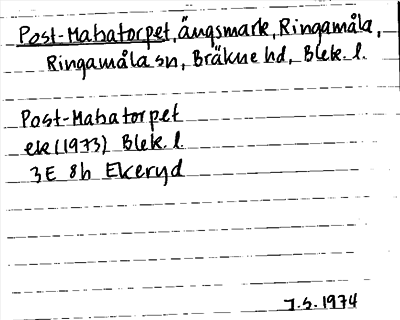 Post-Mahatorpet, ängsmark, Ringamåla,
Ringamåla sn, Bräkne hd, Blek. l.
Post-Mahatorpet
ek (1973) Blek. l.
3E 8h Ekeryd
7.5.1974